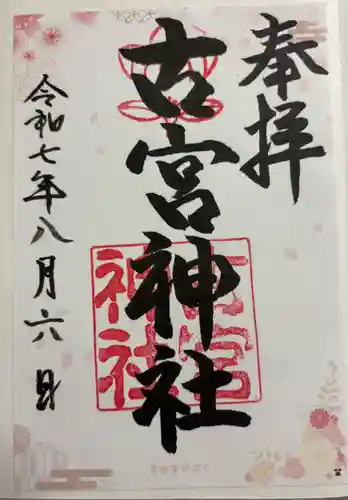 奉拝
古宮神社
古宮
神社
令和七年八月六日